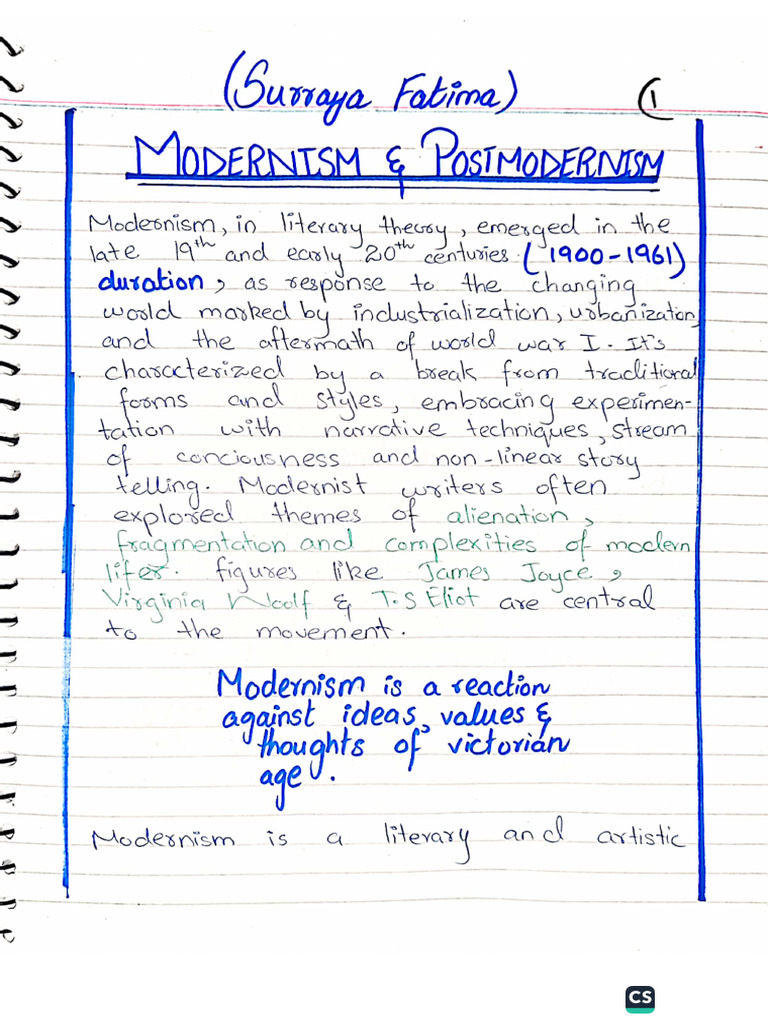 (Surraya Fatima)
1
MODERNISM & POSTMODERNISM
Modernism, in literary theory, emerged in the
late 19th and early 20th centuries (1900-1961)
duration, as response to the changing
world marked by industrialization, urbanization,
and the aftermath of world war I. It's
characterized by a break from traditional
forms and styles, embracing experimen-
tation with narrative techniques, stream
of conciousness and non-linear story
telling. Modernist writers often
explored themes of alienation,
fragmentation and complexities of modern
lifer. figures like James Joyce,
Virginia Woolf & T.S Eliot are central
to the movement.
Modernism is a reaction
against ideas, values &
thoughts of victorian
age.
Modernism is a literary and artistic
CS